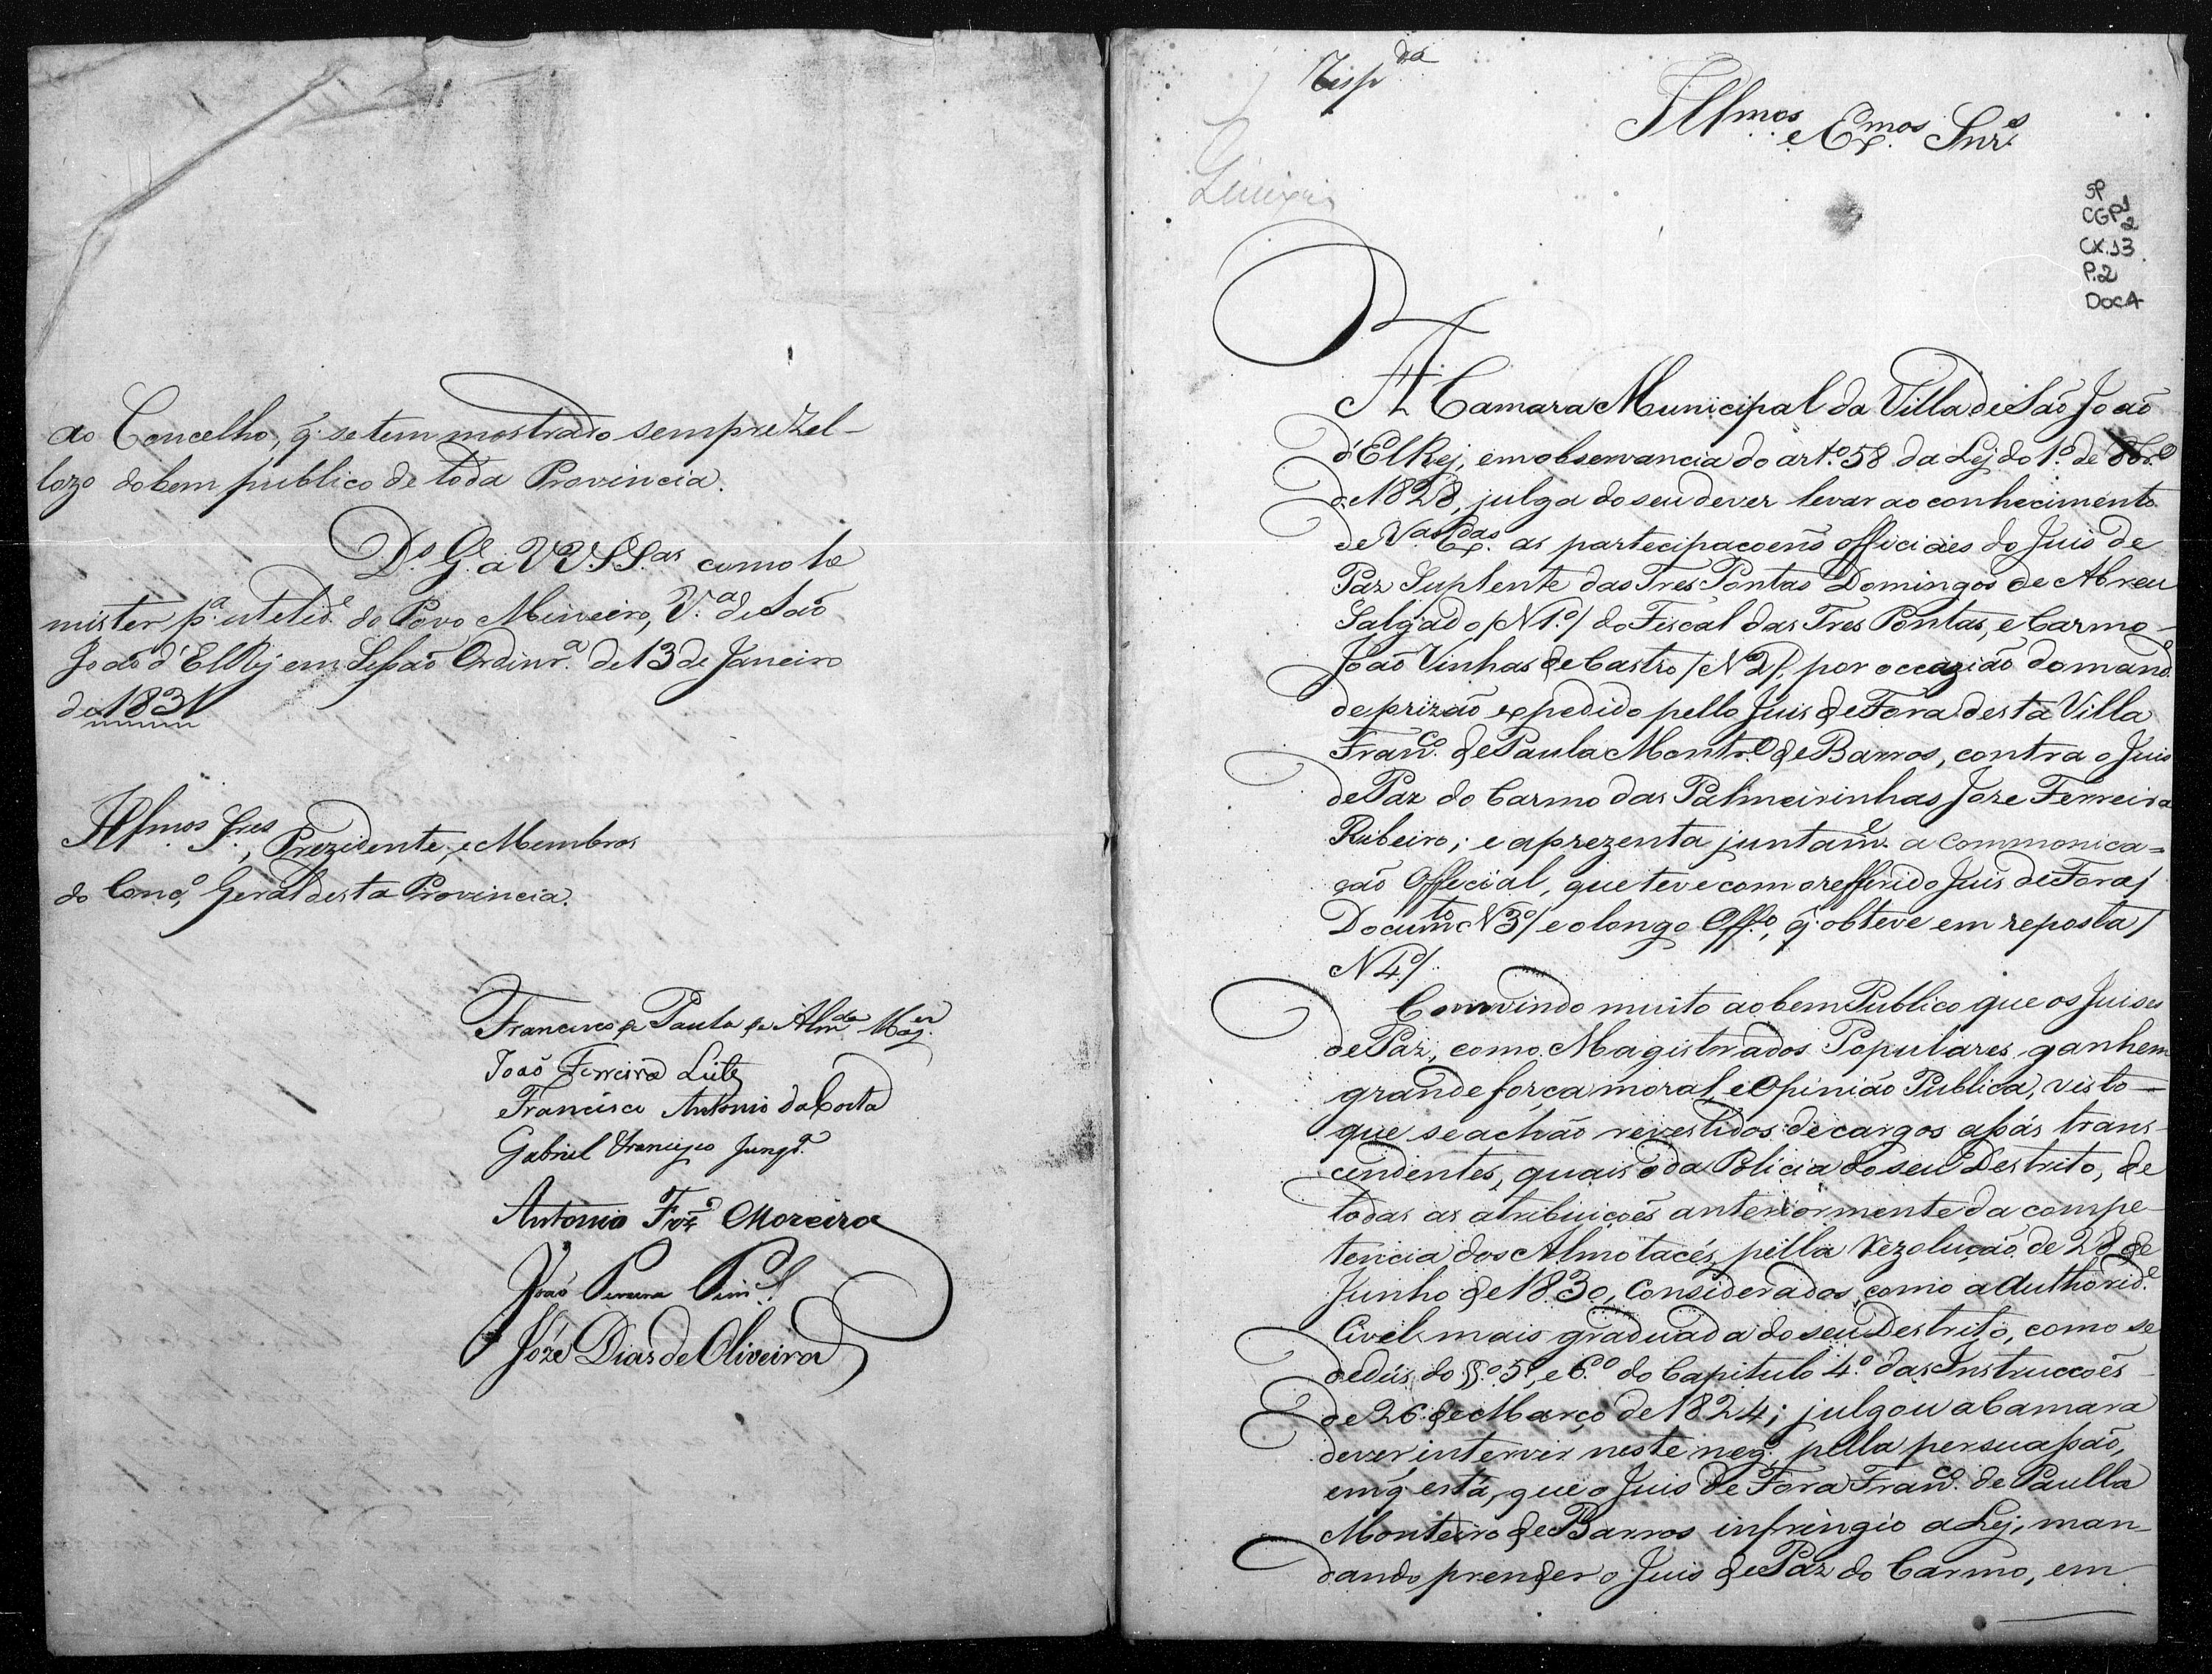 ao Concelho, q̃ se tem mostrado sempre Zel-
lozo do bem publico de toda Provincia.
D.s G.e a VV.SS.as como he
mister p.a utelid.e do Povo Mineiro, V.a de São
João d'ElRej em Sessão Ordinr.a de 13 de Janeiro
de 1831
Illmos. Sres., Prezidente, e Membros
do Conc.o Geral desta Provincia.
Francisco de Paula de Almda. Mag.
João Ferreira Leite
Francisco Antonio da Costa
Gabriel Francisco Junqr.a
Antonio Moreira
João Pereira Pim.el
Józe Dias de Oliveira
Resp.da
Illmos. e Exmos. Snr.es
SP
CGP1
2
CX.13
P.2
DOC.4
A Camara Municipal da Villa de São João
d'ElRej, em observancia do art.o 58 da Lej do 1.o de 8br.o
de 1828, julga do seu dever levar ao conhecimento
de V.as Ex.as as partecipaçoens officiaes do Juis de
Paz Suplente das Tres Pontas Domingos de Abreu
Salgado /N 1.o/ do Fiscal das Tres Pontas, e Carmo
João Vinhas de Castro /N 2/, por occazião do mand.o
de prizão expedido pello Juis de Fora desta Villa
Fran.co de Paula Montr.o de Barros, contra o Juis
de Paz do Carmo das Palmeirinhas Joze Ferreira
Ribeiro; e aprezenta juntam.e a commonica=
ção Official, que teve com o refferido Juis de Fora/
Docum.to N 3.o/ e o longo Off.o, q̃ obteve em reposta/
N 4.o/.
Convindo muito ao bem Publico que os Juises
de Paz, como Magistrados Populares, ganhem
grande força moral, e Opinião Publica, visto-
que se achão revestidos de cargos assás trans-
cendentes, quais o da Policia do seu Destrito, de
todas as atribuicões anteriormente da compe-
tencia dos Almotacés, pella Rezolução de 28 de
Junho de 1830, considerados como a Authorid.e
Civel mais graduada do seu Destrito, como se
dedús do §.o 5.o, e 6.o do Capitulo 4.o das Instruccoẽs
de 26 de Março de 1824; julgou a Camara
dever intervir neste neg.o, pella persuasão,
em q̃ está, que o Juis de Fora Fran.co de Paulla
Monteiro de Barros infringio a Lej, man-
dando prender o Juis de Paz do Carmo, em